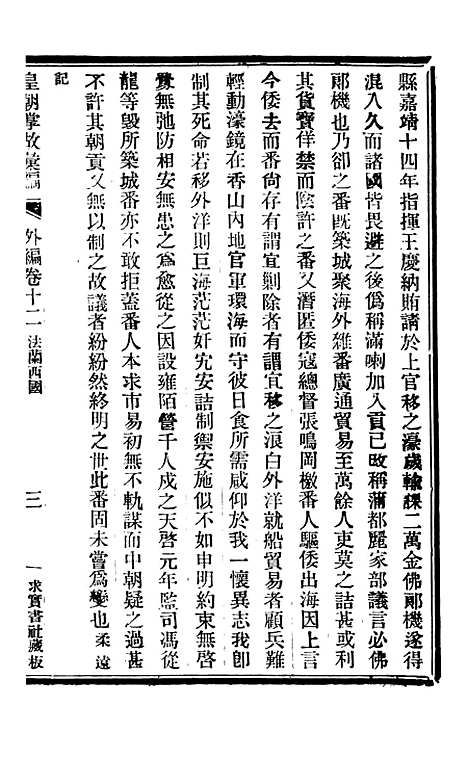 縣嘉靖十四年指揮王慶納賄請於上官移之濠歲輸課二萬金佛郞機遂得
混入久而諸國皆畏避之後僞稱滿喇加入貢已改稱蒲都麗家部議言必佛
郞機也乃卻之番旣築城聚海外雜番廣通貿易至萬餘人吏莫之詰甚或利
其貨寶佯禁而陰許之番又潛匿倭寇總督張鳴岡檄番人驅倭出海因上言
今倭去而番尙存有謂宜剿除者有謂宜移之浪白外洋就船貿易者顧兵難
輕動濠鏡在香山內地官軍環海而守彼日食所需咸仰於我一懷異志我卽
制其死命若移外洋則巨海茫茫奸宄安詰制禦安施似不如申明約束無啓
釁無弛防相安無患之爲愈從之因設雍陌營千人戍之天啓元年監司馮從
龍等毀所築城番亦不敢拒蓋番人本求市易初無不軌謀而中朝疑之過甚
不許其朝貢又無以制之故議者紛紛然終明之世此番固未嘗爲變也柔遠
記
皇朝掌故彙編 外編卷十二 法蘭西國 三 求實書社藏板